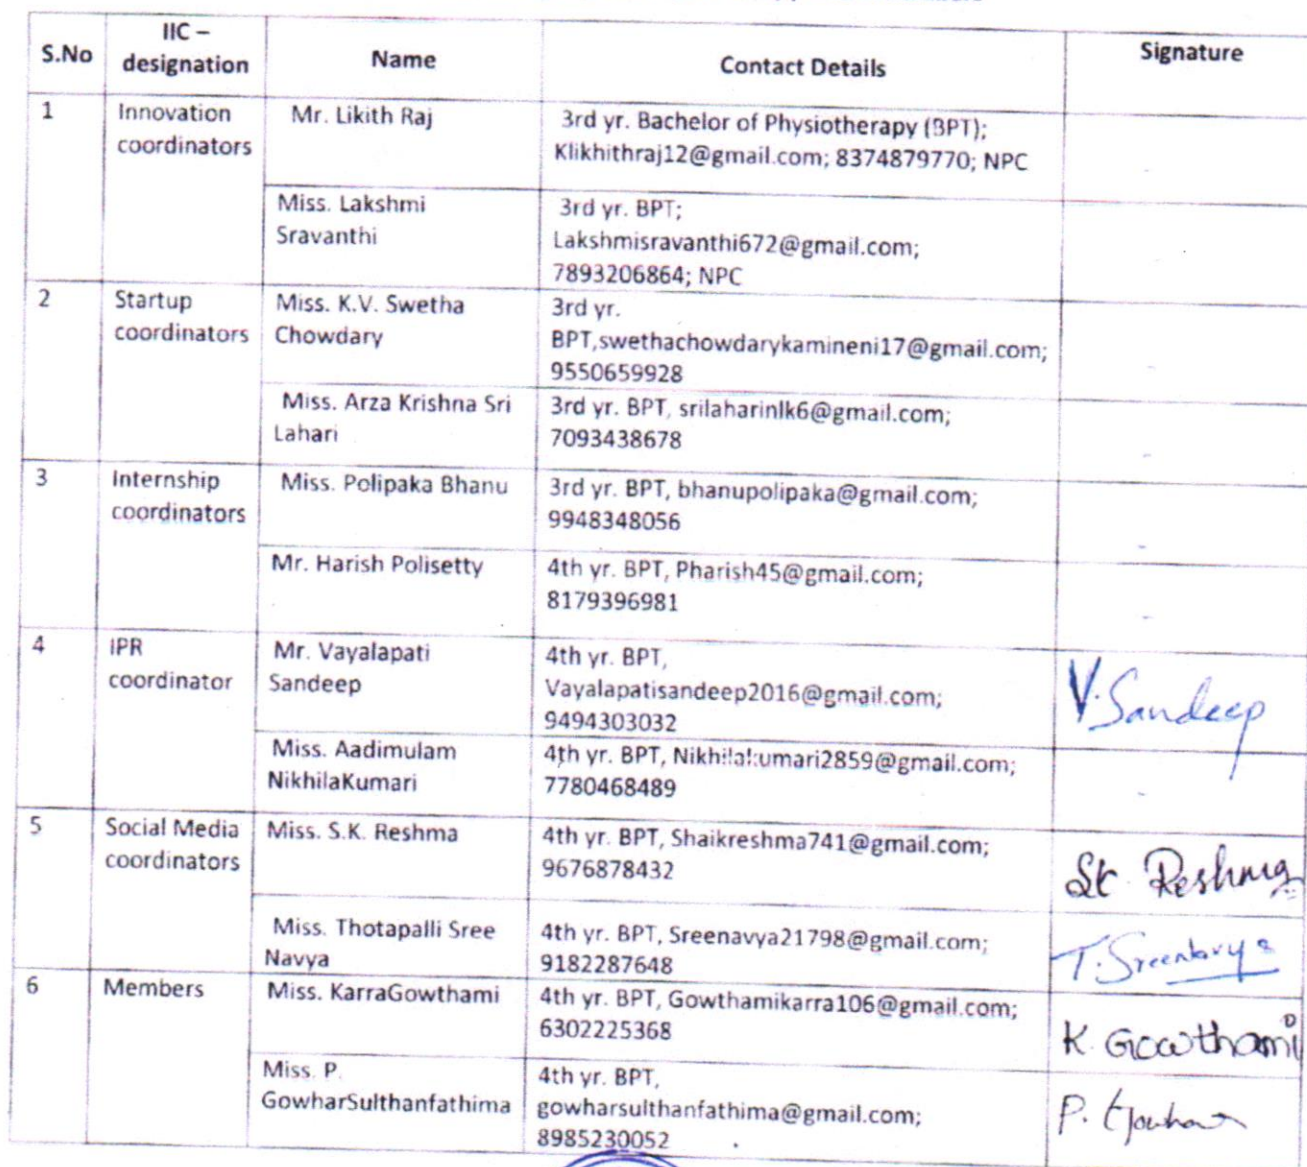 S.No
IIC –
designation
Name
Contact Details
Signature
1
Innovation
coordinators
Mr. Likith Raj
3rd yr. Bachelor of Physiotherapy (BPT);
Klikhithraj12@gmail.com; 8374879770; NPC
Miss. Lakshmi
Sravanthi
3rd yr. BPT;
Lakshmisravanthi672@gmail.com;
7893206864; NPC
2
Startup
coordinators
Miss. K.V. Swetha
Chowdary
3rd yr.
BPT,swethachowdarykamineni17@gmail.com;
9550659928
Miss. Arza Krishna Sri
Lahari
3rd yr. BPT, srilaharinlk6@gmail.com;
7093438678
3
Internship
coordinators
Miss. Polipaka Bhanu
3rd yr. BPT, bhanupolipaka@gmail.com;
9948348056
Mr. Harish Polisetty
4th yr. BPT, Pharish45@gmail.com;
8179396981
4
IPR
coordinator
Mr. Vayalapati
Sandeep
4th yr. BPT,
Vayalapatisandeep2016@gmail.com;
9494303032
V.Sandeep
Miss. Aadimulam
NikhilaKumari
4th yr. BPT, Nikhilakumari2859@gmail.com;
7780468489
5
Social Media
coordinators
Miss. S.K. Reshma
4th yr. BPT, Shaikreshma741@gmail.com;
9676878432
Sk Reshma
Miss. Thotapalli Sree
Navya
4th yr. BPT, Sreenavya21798@gmail.com;
9182287648
T.Sreenavya
6
Members
Miss. KarraGowthami
4th yr. BPT, Gowthamikarra106@gmail.com;
6302225368
K. Gowthami
Miss. P.
GowharSulthanfathima
4th yr. BPT,
gowharsulthanfathima@gmail.com;
8985230052
P. Gowhar